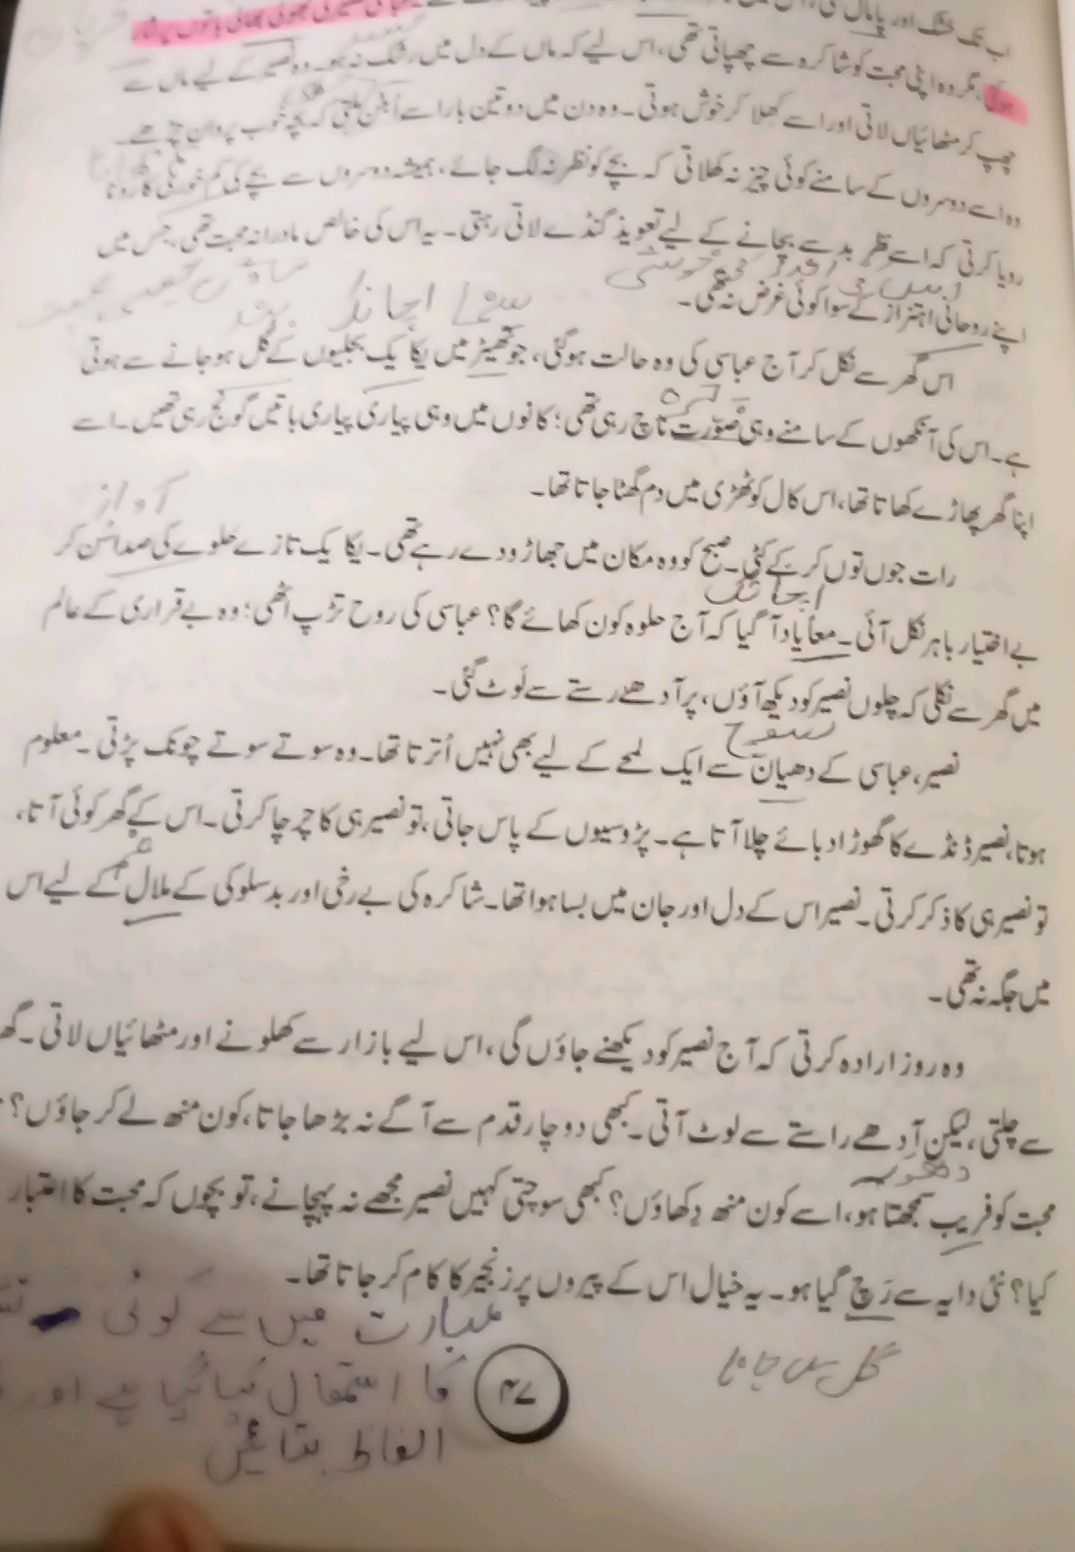 اب تک خشک اور پامال تھی، اس میں
نصیر کی بھولی بھالی باتوں پر نثار
ہوتی، مگر وہ اپنی محبت کو شاکرہ سے چھپاتی تھی، اس لیے کہ ماں کے دل میں رشک نہ ہو۔ وہ نصیر کے لیے ماں سے
چھپ کر مٹھائیاں لاتی اور اسے کھلا کر خوش ہوتی۔ وہ دن میں دو تین بار اسے اُبٹن ملتی کہ بچہ خوب پروان چڑھے۔
وہ اسے دوسروں کے سامنے کوئی چیز نہ کھلاتی کہ بچے کو نظر نہ لگ جائے، ہمیشہ دوسروں سے بچے کی کم خوری کا رونا
رویا کرتی کہ اسے نظر بد سے بچانے کے لیے تعویذ گنڈے لاتی رہتی۔ یہ اس کی خالص مادرانہ محبت تھی، جس میں
کی خوشی
اپنے روحانی اہتزاز کے سوا کوئی غرض نہ تھی۔
سنما اچانک بند
اس گھر سے نکل کر آج عباسی کی وہ حالت ہو گئی، جو تھیٹر میں یکا یک بجلیوں کے گل ہو جانے سے ہوتی
ہے۔ اس کی آنکھوں کے سامنے وہی صورت ناچ رہی تھی؛ کانوں میں وہی پیاری پیاری باتیں گونج رہی تھیں۔ اسے
اپنا گھر پھاڑے کھاتا تھا، اس کال کوٹھری میں دم گھٹا جاتا تھا۔
آواز
رات جوں توں کر کے کٹی۔ صبح کو وہ مکان میں جھاڑو دے رہے تھی۔ یکا یک تازے حلوے کی صدا سُن کر
اچانک
بے اختیار باہر نکل آئی۔ معاً یاد آ گیا کہ آج حلوہ کون کھائے گا؟ عباسی کی روح تڑپ اٹھی؛ وہ بے قراری کے عالم
میں گھر سے نکلی کہ چلوں نصیر کو دیکھ آؤں، پر آدھے رستے سے لوٹ گئی۔
سوچ
نصیر، عباسی کے دھیان سے ایک لمحے کے لیے بھی نہیں اُترتا تھا۔ وہ سوتے سوتے چونک پڑتی۔ معلوم
ہوتا، نصیر ڈنڈے کا گھوڑا دبائے چلا آتا ہے۔ پڑوسیوں کے پاس جاتی، تو نصیر ہی کا چرچا کرتی۔ اس کے گھر کوئی آتا،
غم
تو نصیر ہی کا ذکر کرتی۔ نصیر اس کے دل اور جان میں بسا ہوا تھا۔ شاکرہ کی بے رخی اور بدسلوکی کے ملال کے لیے اس
میں جگہ نہ تھی۔
وہ روز ارادہ کرتی کہ آج نصیر کو دیکھنے جاؤں گی، اس لیے بازار سے کھلونے اور مٹھائیاں لاتی۔ گھ
سے چلتی، لیکن آدھے راستے سے لوٹ آتی۔ کبھی دو چار قدم سے آگے نہ بڑھا جاتا، کون منھ لے کر جاؤں؟
دھوکہ
محبت کو فریب سمجھتا ہو، اسے کون منھ دِکھاؤں؟ کبھی سوچتی کہیں نصیر مجھے نہ پہچانے، تو بچوں کہ محبت کا اعتبار
کیا؟ نئی دایہ سے رَچ گیا ہو۔ یہ خیال اس کے پیروں پر زنجیر کا کام کر جاتا تھا۔
عبارت میں سے کوئی
گل مل جانا
کا استعمال کیا گیا ہے اور
۴۷
الفاظ بتائیں